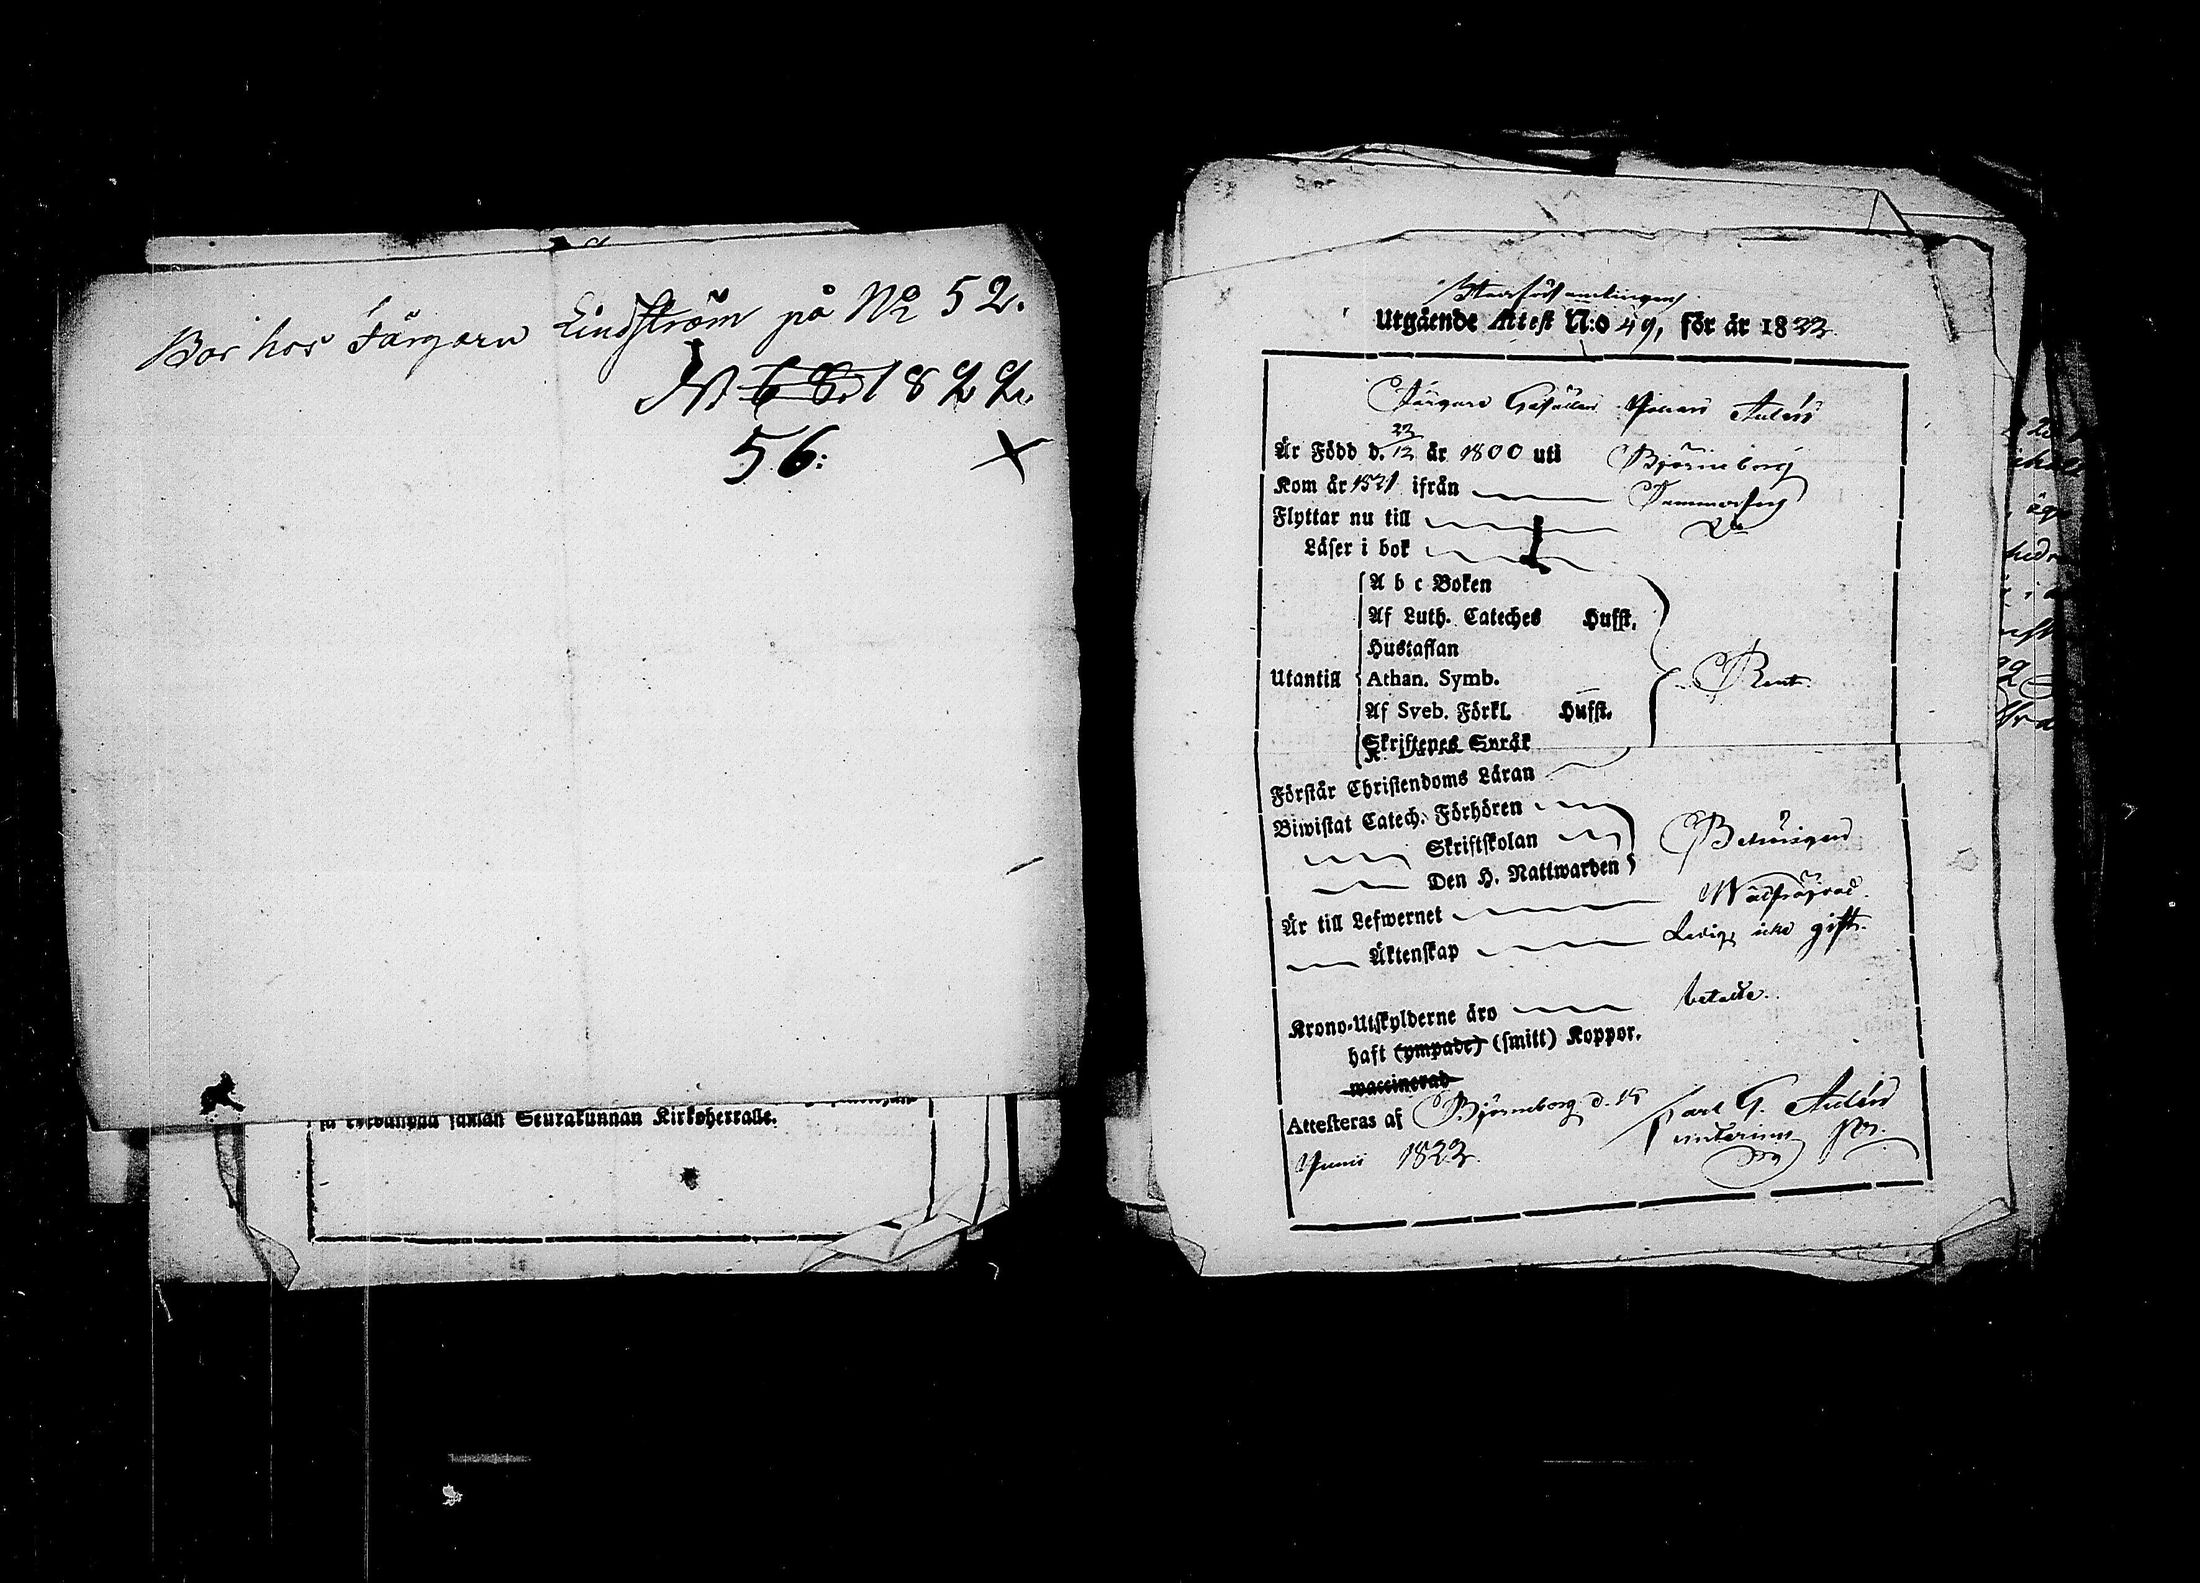 Bor hos Färgarn Lindström på No 52.
N 68. 1822.
56:
ja Seurakunnan Kirkoherralle.
Stadsförsamlingens
Utgående Attest N:o 49, för år 1822.
Färgare Gesällen Johan Aulén
Är Född d. 22/12 år 1800 uti Björneborg
Kom år 1821 ifrån Tammerfors
Flyttar nu till Do
Läser i bok
A b c Boken
Af Luth. Cateches Husst.
Hustaflan
Utantill Athan. Symb. Rent.
Af Sveb. Förkl. Husst.
Skriftenes Språk
Förstår Christendoms Läran
Biwistat Catech. Förhören
Skriftskolan Behörigen
Den H. Nattwarden
Är till Lefwernet Wälfräjdad.
Äktenskap Ledig, icke gift.
Krono-Utskylderne äro betalte.
haft (ympade) (smitt) Koppor.
waccinerad
Attesteras af Björneborg d. 15 Carl G. Aulén
Junii 1822.